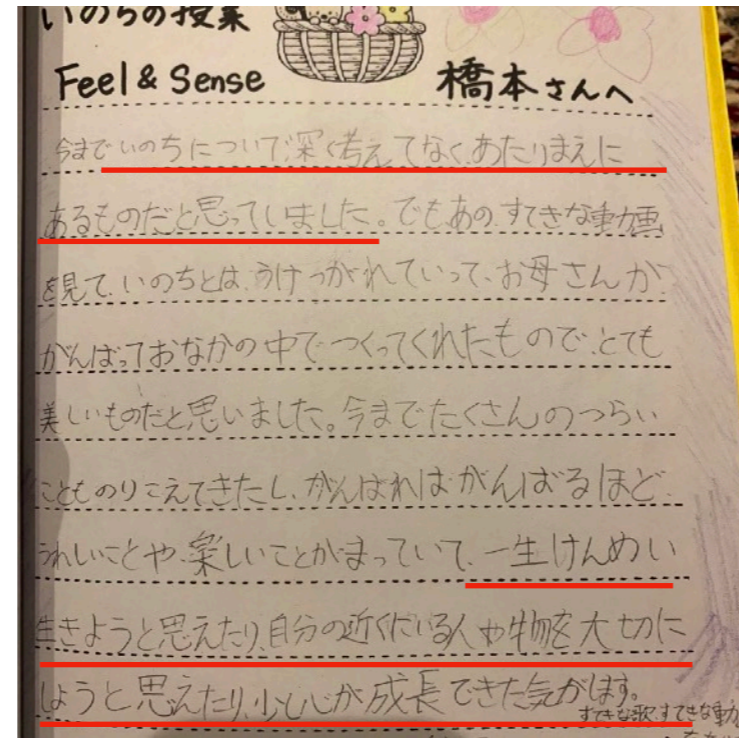 いのちの授業
Feel & Sense 橋本さんへ
今までいのちについて深く考えてなく、あたりまえに
あるものだと思っていました。でも、あの、すてきな動画
を見て、いのちとは、うけつがれていって、お母さんが
がんばっておなかの中でつくってくれたもので、とても
美しいものだと思いました。今までたくさんのつらい
こともものりこえてきたし、がんばればがんばるほど、
うれしいことや、楽しいことがまっていて、一生けんめい
生きようと思えたり、自分の近くにいる人や物を大切に
しようと思えたり、少し心が成長できた気がします。
すてきな歌、すてきな動